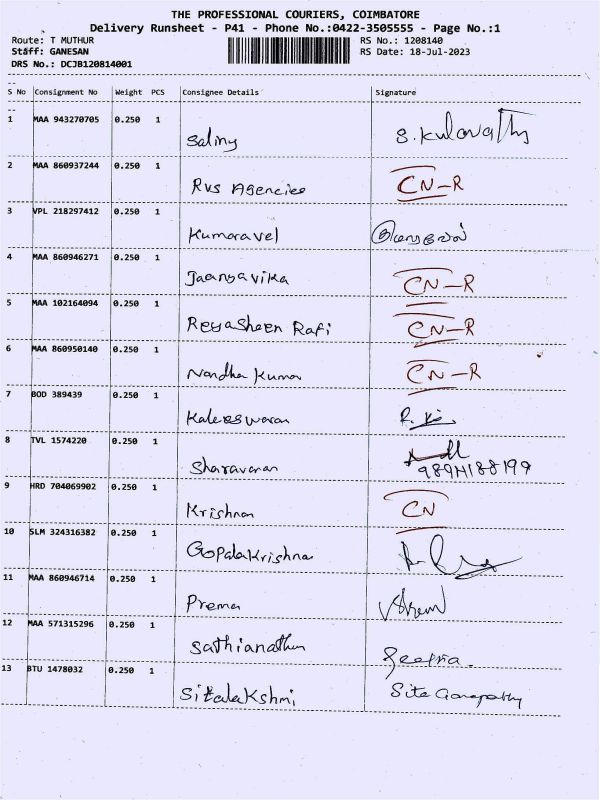 THE PROFESSIONAL COURIERS, COIMBATORE
Delivery Runsheet - P41 - Phone No.:0422-3505555 - Page No.:1
Route: T MUTHUR RS No.: 1208140
Staff: GANESAN RS Date: 18-Jul-2023
DRS No.: DCJB120814001
S No Consignment No Weight PCS Consignee Details Signature
1 MAA 943270705 0.250 1 Saliny S. Kulavathy
2 MAA 860937244 0.250 1 Rvs Agencies CN-R
3 VPL 218297412 0.250 1 Kumaravel
4 MAA 860946271 0.250 1 Jaangavika CN-R
5 MAA 102164094 0.250 1 Reyasheen Rafi CN-R
6 MAA 860950140 0.250 1 Nandha Kumar CN-R
7 BOD 389439 0.250 1 Kaleeswaran
8 TVL 1574220 0.250 1 Sharavanan
9 HRD 704069902 0.250 1 Krishnan CN
10 SLM 324316382 0.250 1 GopalaKrishna
11 MAA 860946714 0.250 1 Prema
12 MAA 571315296 0.250 1 Sathianathan Geetha.
13 BTU 1478032 0.250 1 SitalaKshmi Sita Ganapathy